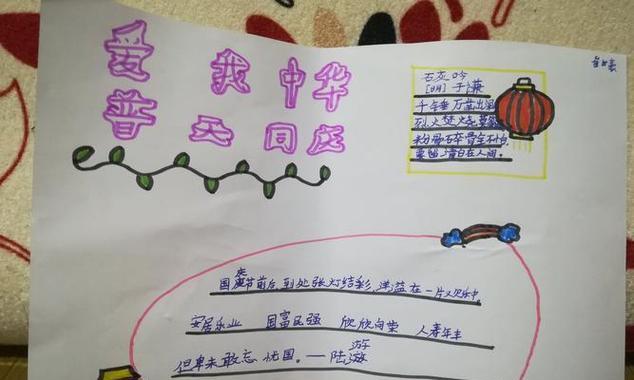 爱我中华
普天同庆
石灰吟
[明] 于谦
千锤万凿出深
烈火焚烧若
粉骨碎骨全不怕
要留清白在人间。
国庆节前后,到处张灯结彩,洋溢在一片欢乐中
安居乐业 国富民强 欣欣向荣 人寿年丰
但卑未敢忘忧国。——陆游